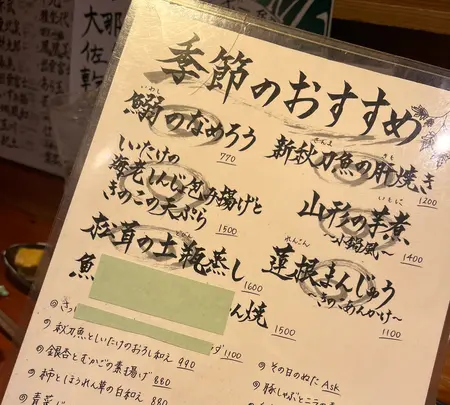 季節のおすすめ
いわし
鰯のなめろう
770
しいたけの
海老しんじょ包み揚げと
きのこの天ぷら
1500
松茸の土瓶蒸し
1600
魚
焼
1500
さんま
新秋刀魚の肝焼き
1200
山形の芋煮
〜小鍋風〜
1400
れんこん
蓮根まんじゅう
〜きのこあんかけ〜
1100
◎さっ
ダ 1100
◎秋刀魚としいたけのおろし和え 990
◎銀杏とむかごの素揚げ 880
◎柿とほうれん草の白和え 880
◎その日のぬた Ask
◎豚しゃぶとニラの